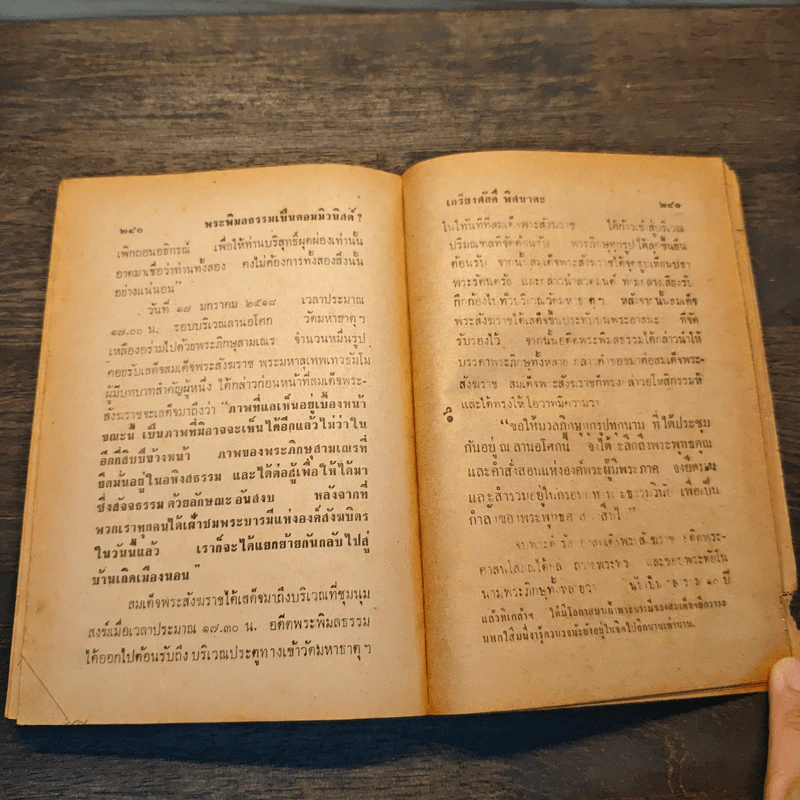 ๒๔๐ พระพิมลธรรมเป็นคอมมิวนิสต์ ?
เพิกถอนอธิกรณ์ เพื่อให้ท่านบริสุทธิ์ผุดผ่องเท่านั้น
อาตมาเชื่อว่าท่านทั้งสอง คงไม่ต้องการทั้งสองสิ่งนั้น
อย่างแน่นอน"
วันที่ ๑๗ มกราคม ๒๕๑๘ เวลาประมาณ
๑๗.๐๐ น. รอบบริเวณลานอโศก วัดมหาธาตุฯ
เหลืองอร่ามไปด้วยพระภิกษุสามเณร จำนวนหมื่นรูป
คอยรับเสด็จสมเด็จพระสังฆราช พระมหาลุเทพเทวธัมโม
ผู้มีบทบาทสำคัญผู้หนึ่ง ได้กล่าวก่อนหน้าที่สมเด็จพระ-
สังฆราชจะเสด็จมาถึงว่า "ภาพที่แลเห็นอยู่เบื้องหน้า
ขณะนี้ เป็นภาพที่มิอาจจะเห็นได้อีกแล้วไม่ว่าใน
อีกกี่สิบปีข้างหน้า ภาพของพระภิกษุสามเณรที่
ยึดมั่นอยู่ในอหิงสธรรม และได้ต่อสู้เพื่อให้ได้มา
ซึ่งสัจจธรรม ด้วยลักษณะอันสงบ หลังจากที่
พวกเราทุกคนได้เฝ้าชมพระบารมีแห่งองค์สังฆบิดร
ในวันนี้แล้ว เราก็จะได้แยกย้ายกันกลับไปสู่
บ้านเกิดเมืองนอน"
สมเด็จพระสังฆราชได้เสด็จมาถึงบริเวณที่ชุมนุม
สงฆ์เมื่อเวลาประมาณ ๑๗.๓๐ น. อดีตพระพิมลธรรม
ได้ออกไปต้อนรับถึง บริเวณประตูทางเข้าวัดมหาธาตุฯ
เกรียงศักดิ์ พิศนาคะ ๒๔๑
ในทันทีที่สมเด็จพระสังฆราช ได้ก้าวเข้าสู่บริเวณ
ปริมณฑลที่จัดต้อนรับ พระภิกษุทุกรูปได้ลุกขึ้นยืน
ต้อนรับ จากนั้นสมเด็จพระสังฆราชได้จุดธูปเทียนบูชา
พระรัตนตรัย และกล่าวนำสวดมนต์ ท่ามกลางเสียงรับ
กึกก้องไปทั่วบริเวณวัดมหาธาตุฯ หลังจากนั้นสมเด็จ
พระสังฆราชได้เสด็จขึ้นประทับบนพระอาสนะ ที่จัด
รับรองไว้ จากนั้นอดีตพระพิมลธรรมได้กล่าวนำให้
บรรดาพระภิกษุทั้งหลาย กล่าวคำขอขมาต่อสมเด็จพระ-
สังฆราช สมเด็จพระสังฆราชก็ทรงกล่าวอโหสิกรรมให้
และได้ทรงให้โอวาทมีความว่า
"ขอให้มวลภิกษุทุกรูปทุกนาม ที่ได้ประชุม
กันอยู่ ณ ลานอโศกนี้ จงได้ระลึกถึงพระพุทธคุณ
และคำสั่งสอนแห่งองค์พระผู้มีพระภาค จงยึดมั่น
และสำรวมอยู่ในกรอบ ธรรมวินัย เพื่อเป็น
กำลังของพระพุทธศาสนาสืบไป"
จบพระดำรัส สมเด็จพระสังฆราช อดีตพระ-
ศาสนโสภณได้ และขอบพระทัยใน
นามพระภิกษุทั้งหลายว่า เป็น ๑๐ ปี
แล้วที่เกล้าฯ ได้มีโอกาสมาเฝ้าพระบารมีของสมเด็จฯอีกวาระ